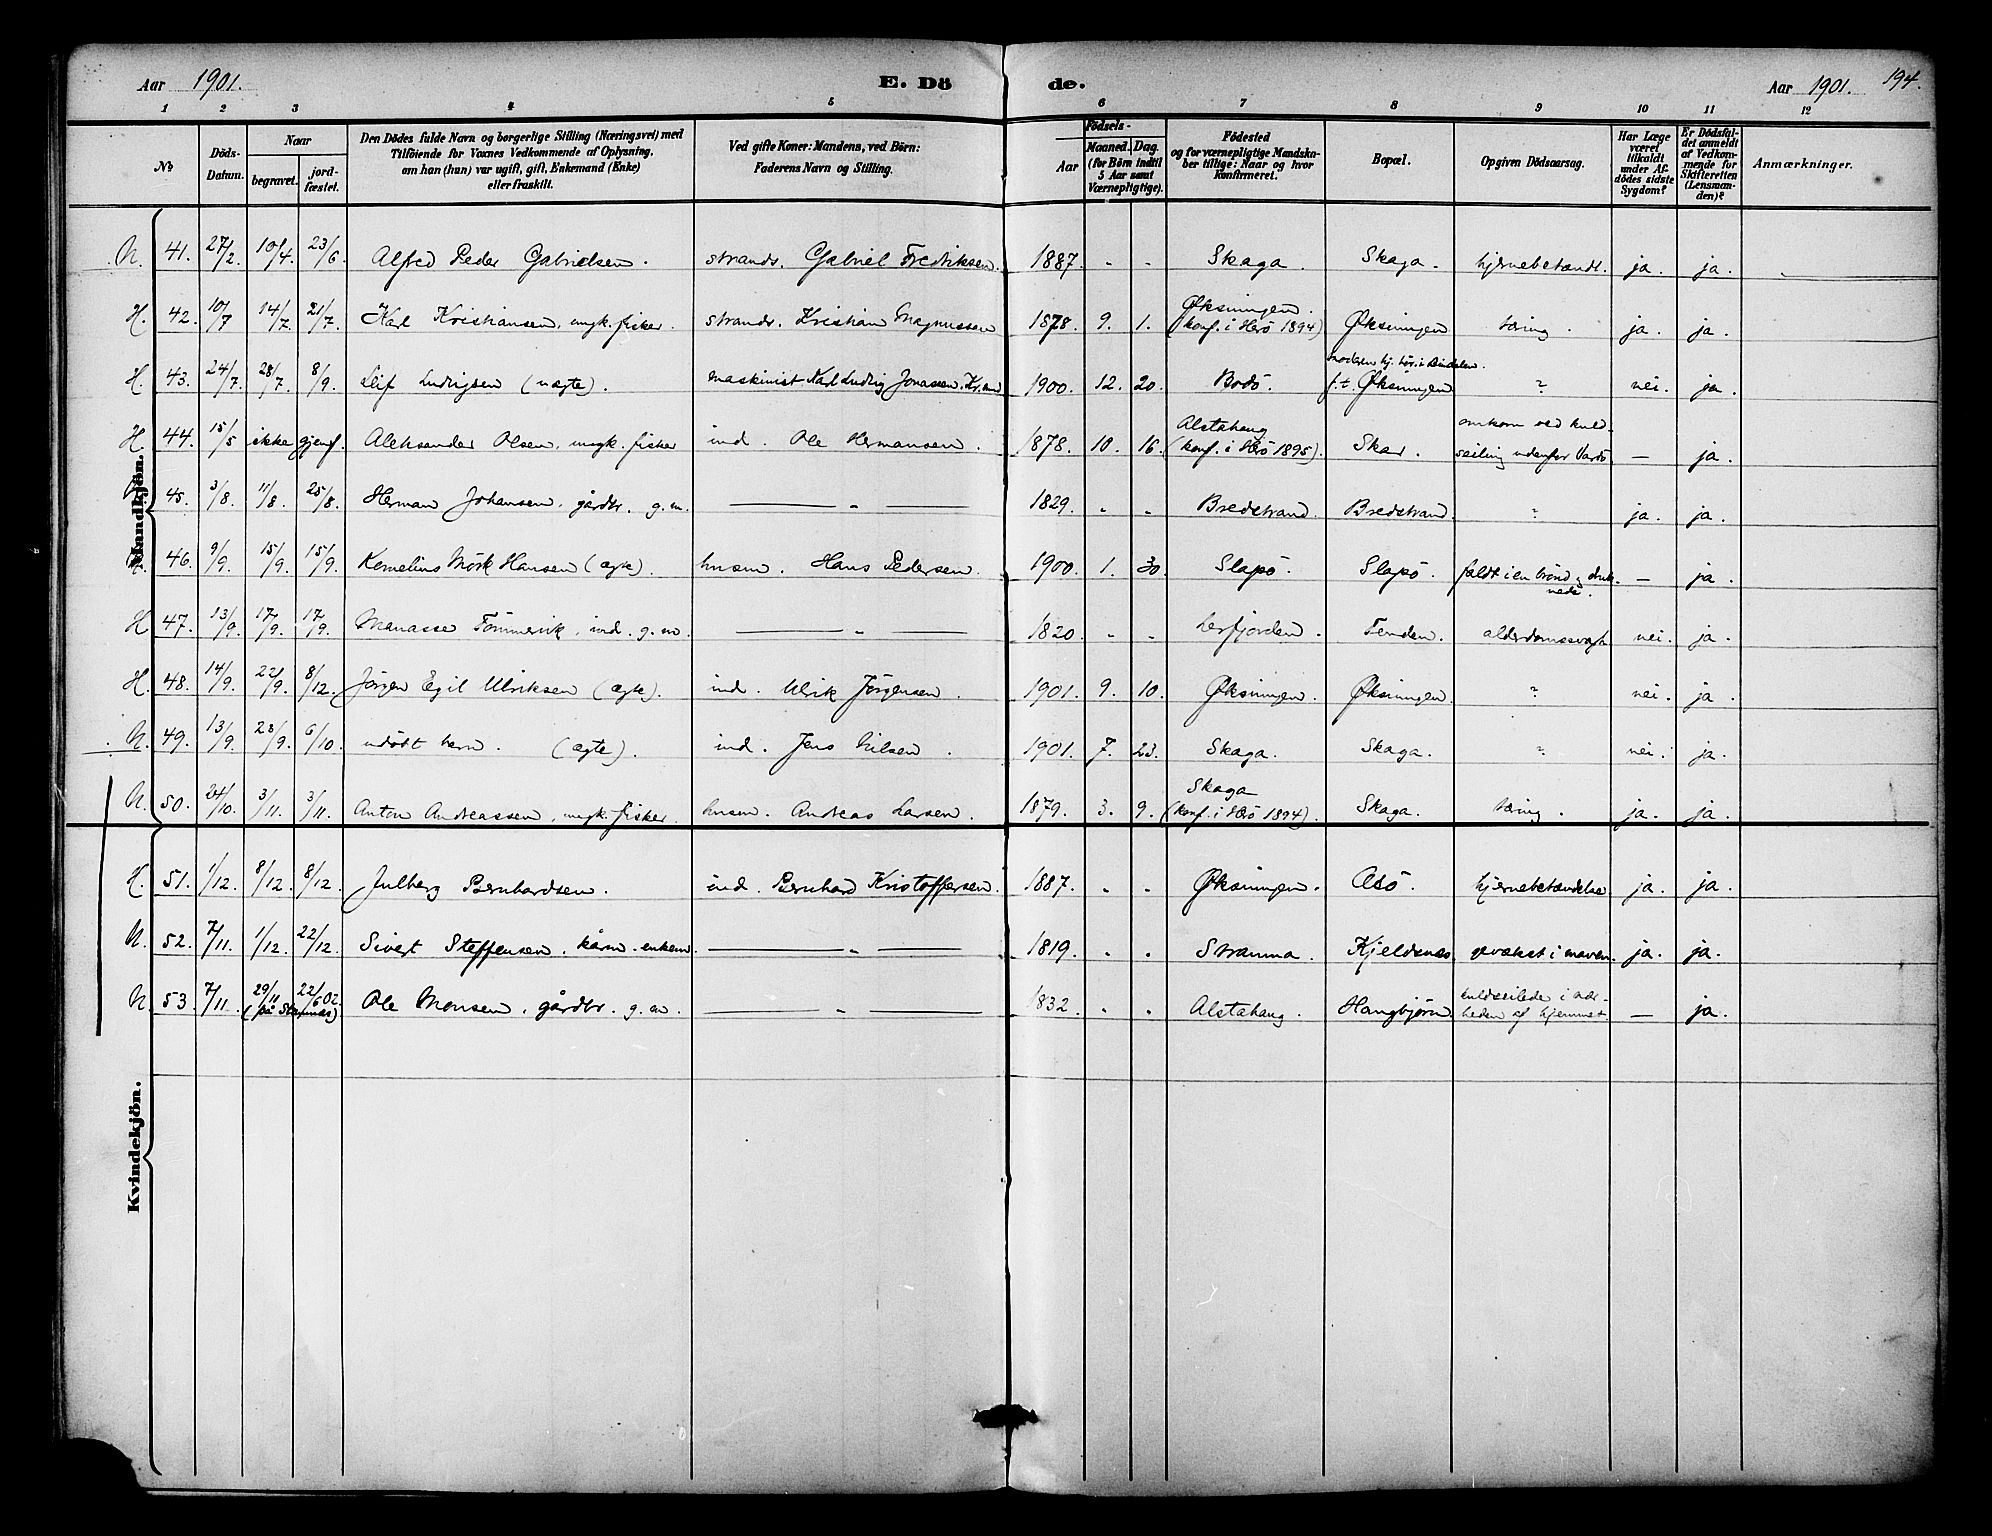 Aar 1901. E. Dö de. Aar 1901. 194.
1 2 3 4 5 6 7 8 9 10 11 12
No
Döds-Datum.
Naar
begravet.
jord-fæstet.
Den Dödes fulde Navn og borgerlige Stilling (Næringsvei) med
Tilföiende for Voxnes Vedkommende af Oplysning,
om han (hun) var ugift, gift, Enkemand (Enke)
eller fraskilt.
Ved gifte Koner: Mandens, ved Börn:
Faderens Navn og Stilling.
Födsels-
Aar
Maaned. Dag.
(for Börn indtil
5 Aar samt
Værnepligtige).
Födested
og for værnepligtige Mandska-
ber tillige: Naar og hvor
Konfirmeret.
Bopæl.
Opgiven Dödsaarsag.
Har Læge
været
tilkaldt
under Af-
dödes sidste
Sygdom?
Er Dödsfal-
det anmeldt
af Vedkom-
mende for
Skifteretten
(Lensman-
den)?
Anmærkninger.
Mandkjön.
N. 41. 27/2. 10/4. 23/6 Alfred Peder Gabrielsen. strands. Gabriel Fredriksen. 1887. " " Skaga. Skaga. hjernebetændt. ja. ja.
H. 42. 10/7 14/7. 21/7. Karl Kristiansen, ungk. fisker. strands. Kristian Magnussen 1878. 9. 1. Øksningen. (konf. i Herö 1894) Øksningen tæring. ja. ja.
H. 43. 24/7. 28/7. 8/9. Leif Ludvigsen (uægte). maskinist Karl Ludvig Jonassen, Kr.sund 1900. 12. 20. Bodö. f.t. Øksningen ? nei. ja.
H. 44. 15/5 ikke gjenf. Aleksander Olsen, ungk. fisker ind. Ole Hermansen. 1878. 10. 16. Alstahaug (konf. i Herö 1895). Skar. omkom ved kuld-
seiling udenfor Vardö — ja.
45. 3/8. 11/8. 25/8. Herman Johansen, gårdbr. g. m. — " — 1829. " " Bredstrand. Bredstrand. ? ja. ja.
46. 9/9. 15/9. 15/9. Kornelius Mörk Hansen (ægte). husm. Hans Pedersen. 1900. 1. 30. Slapö. Slapö. faldt i en brönd og druk-
nede. — ja.
H 47. 13/9. 17/9. 17/9. Manasse Tömmervik, ind. g. m. — " — 1820. " " Leirfjorden. Tenden. alderdomssvagh. nei. ja.
H. 48. 14/9. 22/9. 8/12. Jörgen Egil Ulriksen (ægte). ind. Ulrik Jörgensen. 1901. 9. 10. Øksningen. Øksningen. ? nei. ja.
N. 49. 13/9. 23/9. 6/10. udöbt barn. (ægte). ind. Jens Nilsen. 1901. 7. 23. Skaga. Skaga. ? nei. ja.
N. 50. 24/10. 3/11. 3/11. Anton Andreassen, ungk. fisker. husm. Andreas Larsen. 1879. 3. 9. Skaga (konf. i Herö 1894). Skaga. tæring. ja. ja.
H. 51. 1/12. 8/12. 8/12. Julberg Bernhardsen. ind. Bernhard Kristoffersen. 1887. " " Øksningen. hjernebetændelse ja. ja.
N. 52. 7/11. 1/12. 22/12. Sivert Steffensen, kårm. enkem. — " — 1819. " " Stranma. Kjeldsnæs. vækst i maven. ja. ja.
N. 53. 7/11. 29/11 22/6 02. Ole Monsen, gårdbr. g. m. — " — 1832. " " Alstahaug. kuldseilede i nær-
heden af hjemmet. — ja.
Kvindekjön.